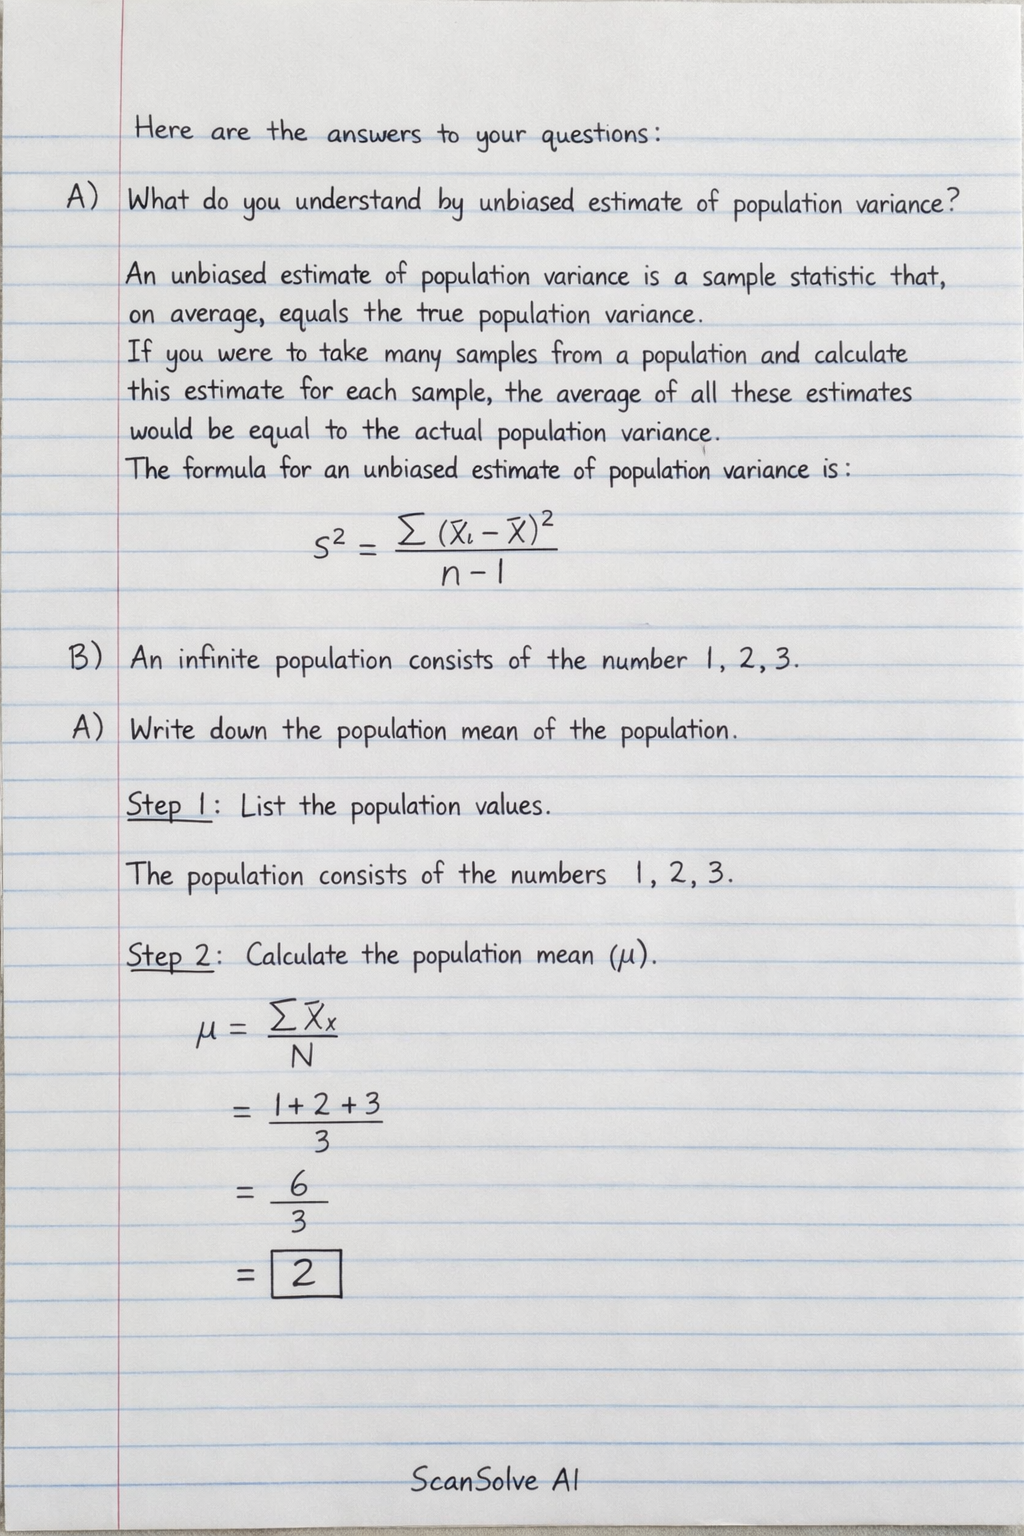 Here are the answers to your questions:
A) What do you understand by unbiased estimate of population variance?
An unbiased estimate of population variance is a sample statistic that,
on average, equals the true population variance.
If you were to take many samples from a population and calculate
this estimate for each sample, the average of all these estimates
would be equal to the actual population variance.
The formula for an unbiased estimate of population variance is:
S² = Σ (x̄ᵢ − x̄)² / n − 1
B) An infinite population consists of the number 1, 2, 3.
A) Write down the population mean of the population.
Step 1: List the population values.
The population consists of the numbers 1, 2, 3.
Step 2: Calculate the population mean (μ).
μ = Σ X̄ₓ / N
= 1 + 2 + 3 / 3
= 6 / 3
= 2
ScanSolve AI